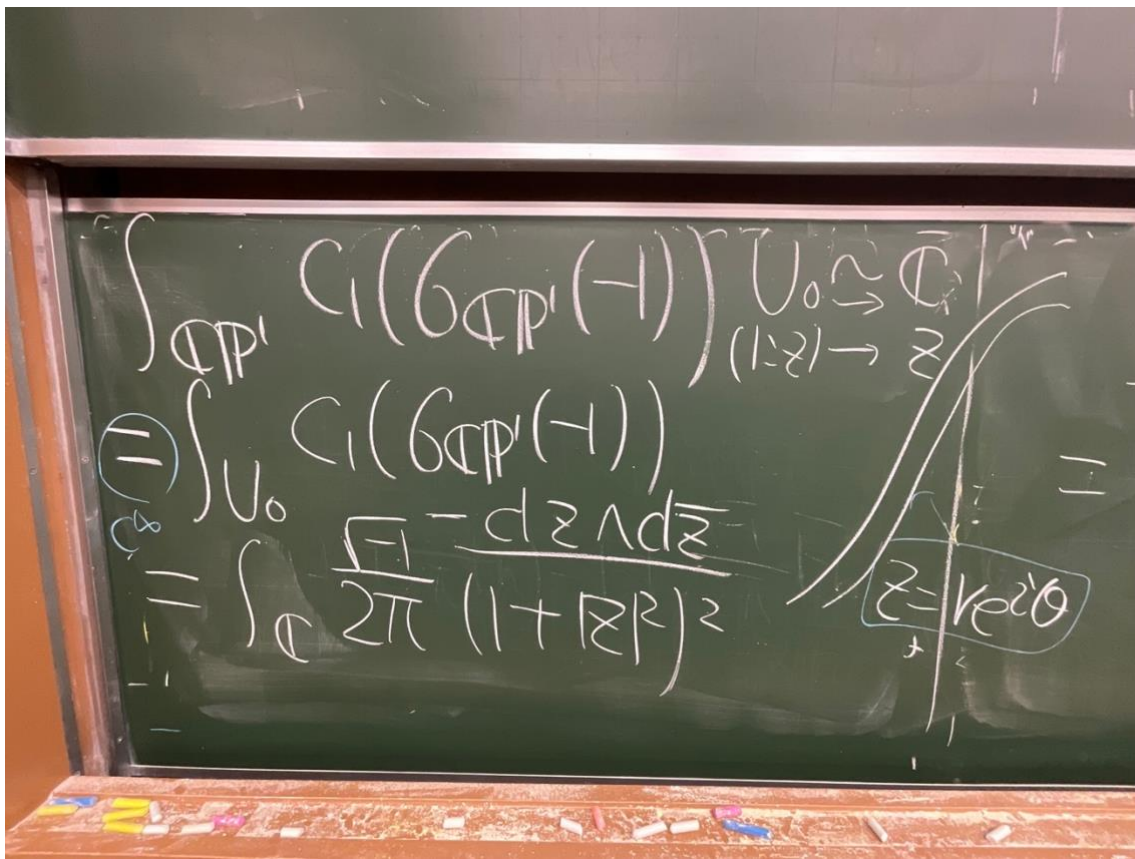 ∫_{ℂℙ¹} C₁(𝒪_{ℂℙ¹}(-1)) U₀ ⥲ ℂ
(1:z) → z
= ∫_{U₀} C₁(𝒪_{ℂℙ¹}(-1))
C^∞
= ∫_ℂ √-1/2π -dz∧dz̄/(1+|z|²)²
z=re^{iθ}
=